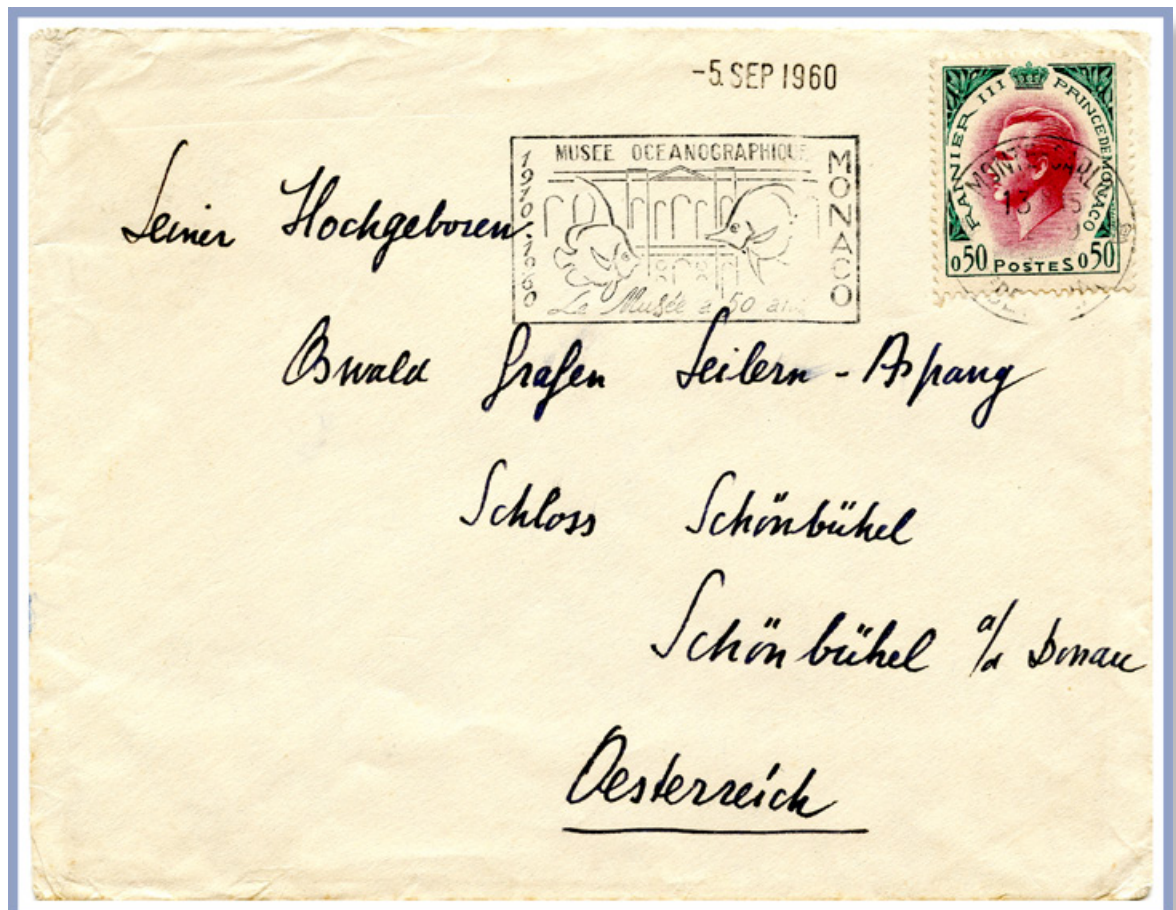 -5. SEP 1960
MUSEE OCEANOGRAPHIQUE
1910-1960
MONACO
Le Musée a 50 ans
RAINIER III PRINCE DE MONACO
0,50 POSTES 0,50
Seiner Hochgeboren
Oswald Grafen Seilern-Aspang
Schloss Schönbühel
Schönbühel a/d Donau
Oesterreich